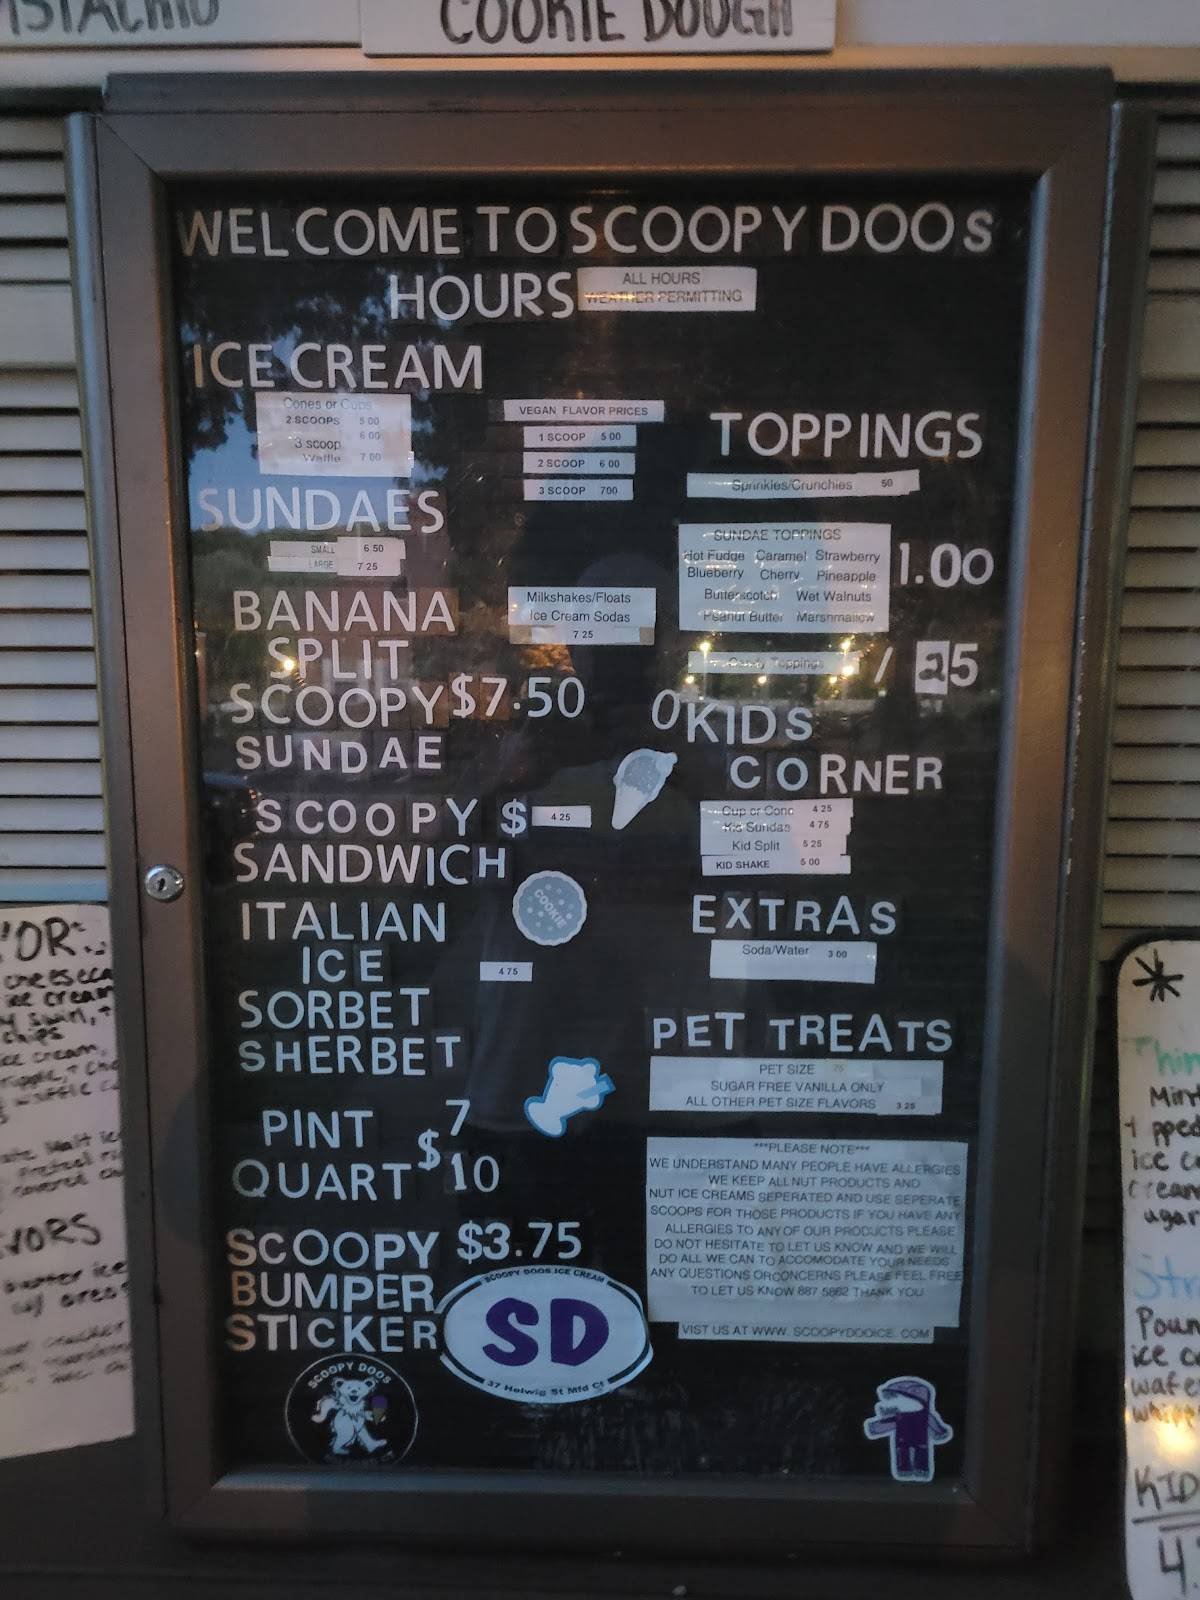 COOKIE DOUGH
WELCOME TO SCOOPY DOOs
HOURS
ALL HOURS
WEATHER PERMITTING
ICE CREAM
Cones or Cups
2 SCOOPS 5 00
3 scoop 6 00
Waffle 7 00
VEGAN FLAVOR PRICES
1 SCOOP 5 00
2 SCOOP 6 00
3 SCOOP 700
SUNDAES
SMALL 6 50
LARGE 7 25
BANANA
SPLIT
SCOOPY $7.50
SUNDAE
Milkshakes/Floats
Ice Cream Sodas
7 25
SCOOPY $ 4 25
SANDWICH
COOKIE
ITALIAN
ICE 4 75
SORBET
SHERBET
PINT 7
QUART $ 10
SCOOPY $3.75
BUMPER
STICKER
SCOOPY DOOS ICE CREAM
SD
37 Helwig St Mfd Ct
SCOOPY DOOS
TOPPINGS
Sprinkles/Crunchies 50
SUNDAE TOPPINGS
Hot Fudge Caramel Strawberry
Blueberry Cherry Pineapple
Butterscotch Wet Walnuts
Peanut Butter Marshmallow
1.00
Toppings / 25
KIDS
CORNER
Cup or Cone 4 25
Kid Sundae 4 75
Kid Split 5 25
KID SHAKE 5 00
EXTRAS
Soda/Water 3 00
PET TREATS
PET SIZE 75
SUGAR FREE VANILLA ONLY
ALL OTHER PET SIZE FLAVORS 3 25
***PLEASE NOTE***
WE UNDERSTAND MANY PEOPLE HAVE ALLERGIES
WE KEEP ALL NUT PRODUCTS AND
NUT ICE CREAMS SEPERATED AND USE SEPERATE
SCOOPS FOR THOSE PRODUCTS IF YOU HAVE ANY
ALLERGIES TO ANY OF OUR PRODUCTS PLEASE
DO NOT HESITATE TO LET US KNOW AND WE WILL
DO ALL WE CAN TO ACCOMODATE YOUR NEEDS
ANY QUESTIONS OR CONCERNS PLEASE FEEL FREE
TO LET US KNOW 887 5862 THANK YOU
VIST US AT WWW. SCOOPYDOOICE. COM
ice cream
chips
ice cream,
*
ice
KID